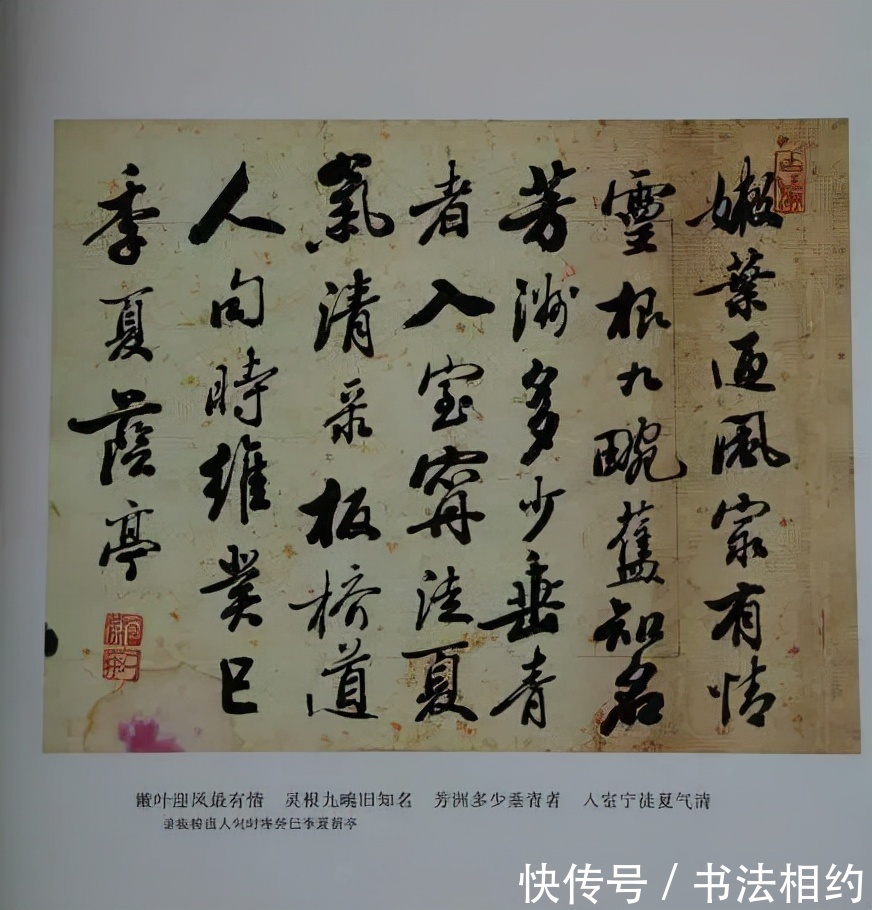 嫩葉迎風最有情
靈根九畹舊知名
芳洲多少垂青
者入室寗徒夏
氣清 录板桥道
人句 時維癸巳
季夏 蔭亭
嫩叶迎风最有情 灵根九畹旧知名 芳洲多少垂青者 入室宁徒夏气清
录板桥道人句时维癸巳季夏荫亭
快传号 / 书法相约